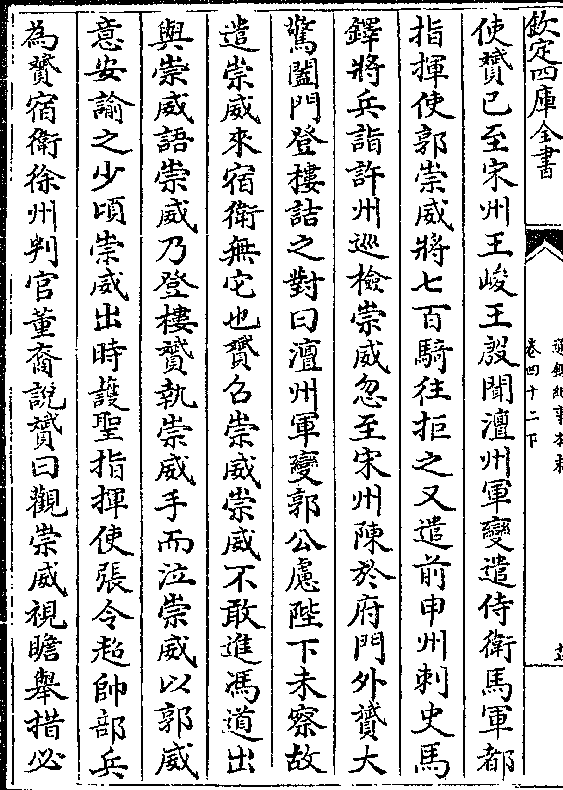 欽定四庫全書
通鑑紀事本末
卷四十二下
使贇已至宋州王峻王殷聞澶州軍變遣侍衛馬軍都
指揮使郭崇威將七百騎往拒之又遣前申州刺史馬
鐸將兵詣許州巡檢崇威忽至宋州陳於府門外贇大
驚闔門登樓詰之對曰澶州軍變郭公慮陛下未察故
遣崇威來宿衛無它也贇召崇威崇威不敢進馮道出
與崇威語崇威乃登樓贇執崇威手而泣崇威以郭威
意安諭之少頃崇威出時護聖指揮使張令超帥部兵
為贇宿衛徐州判官董裔說贇曰觀崇威視瞻舉措必